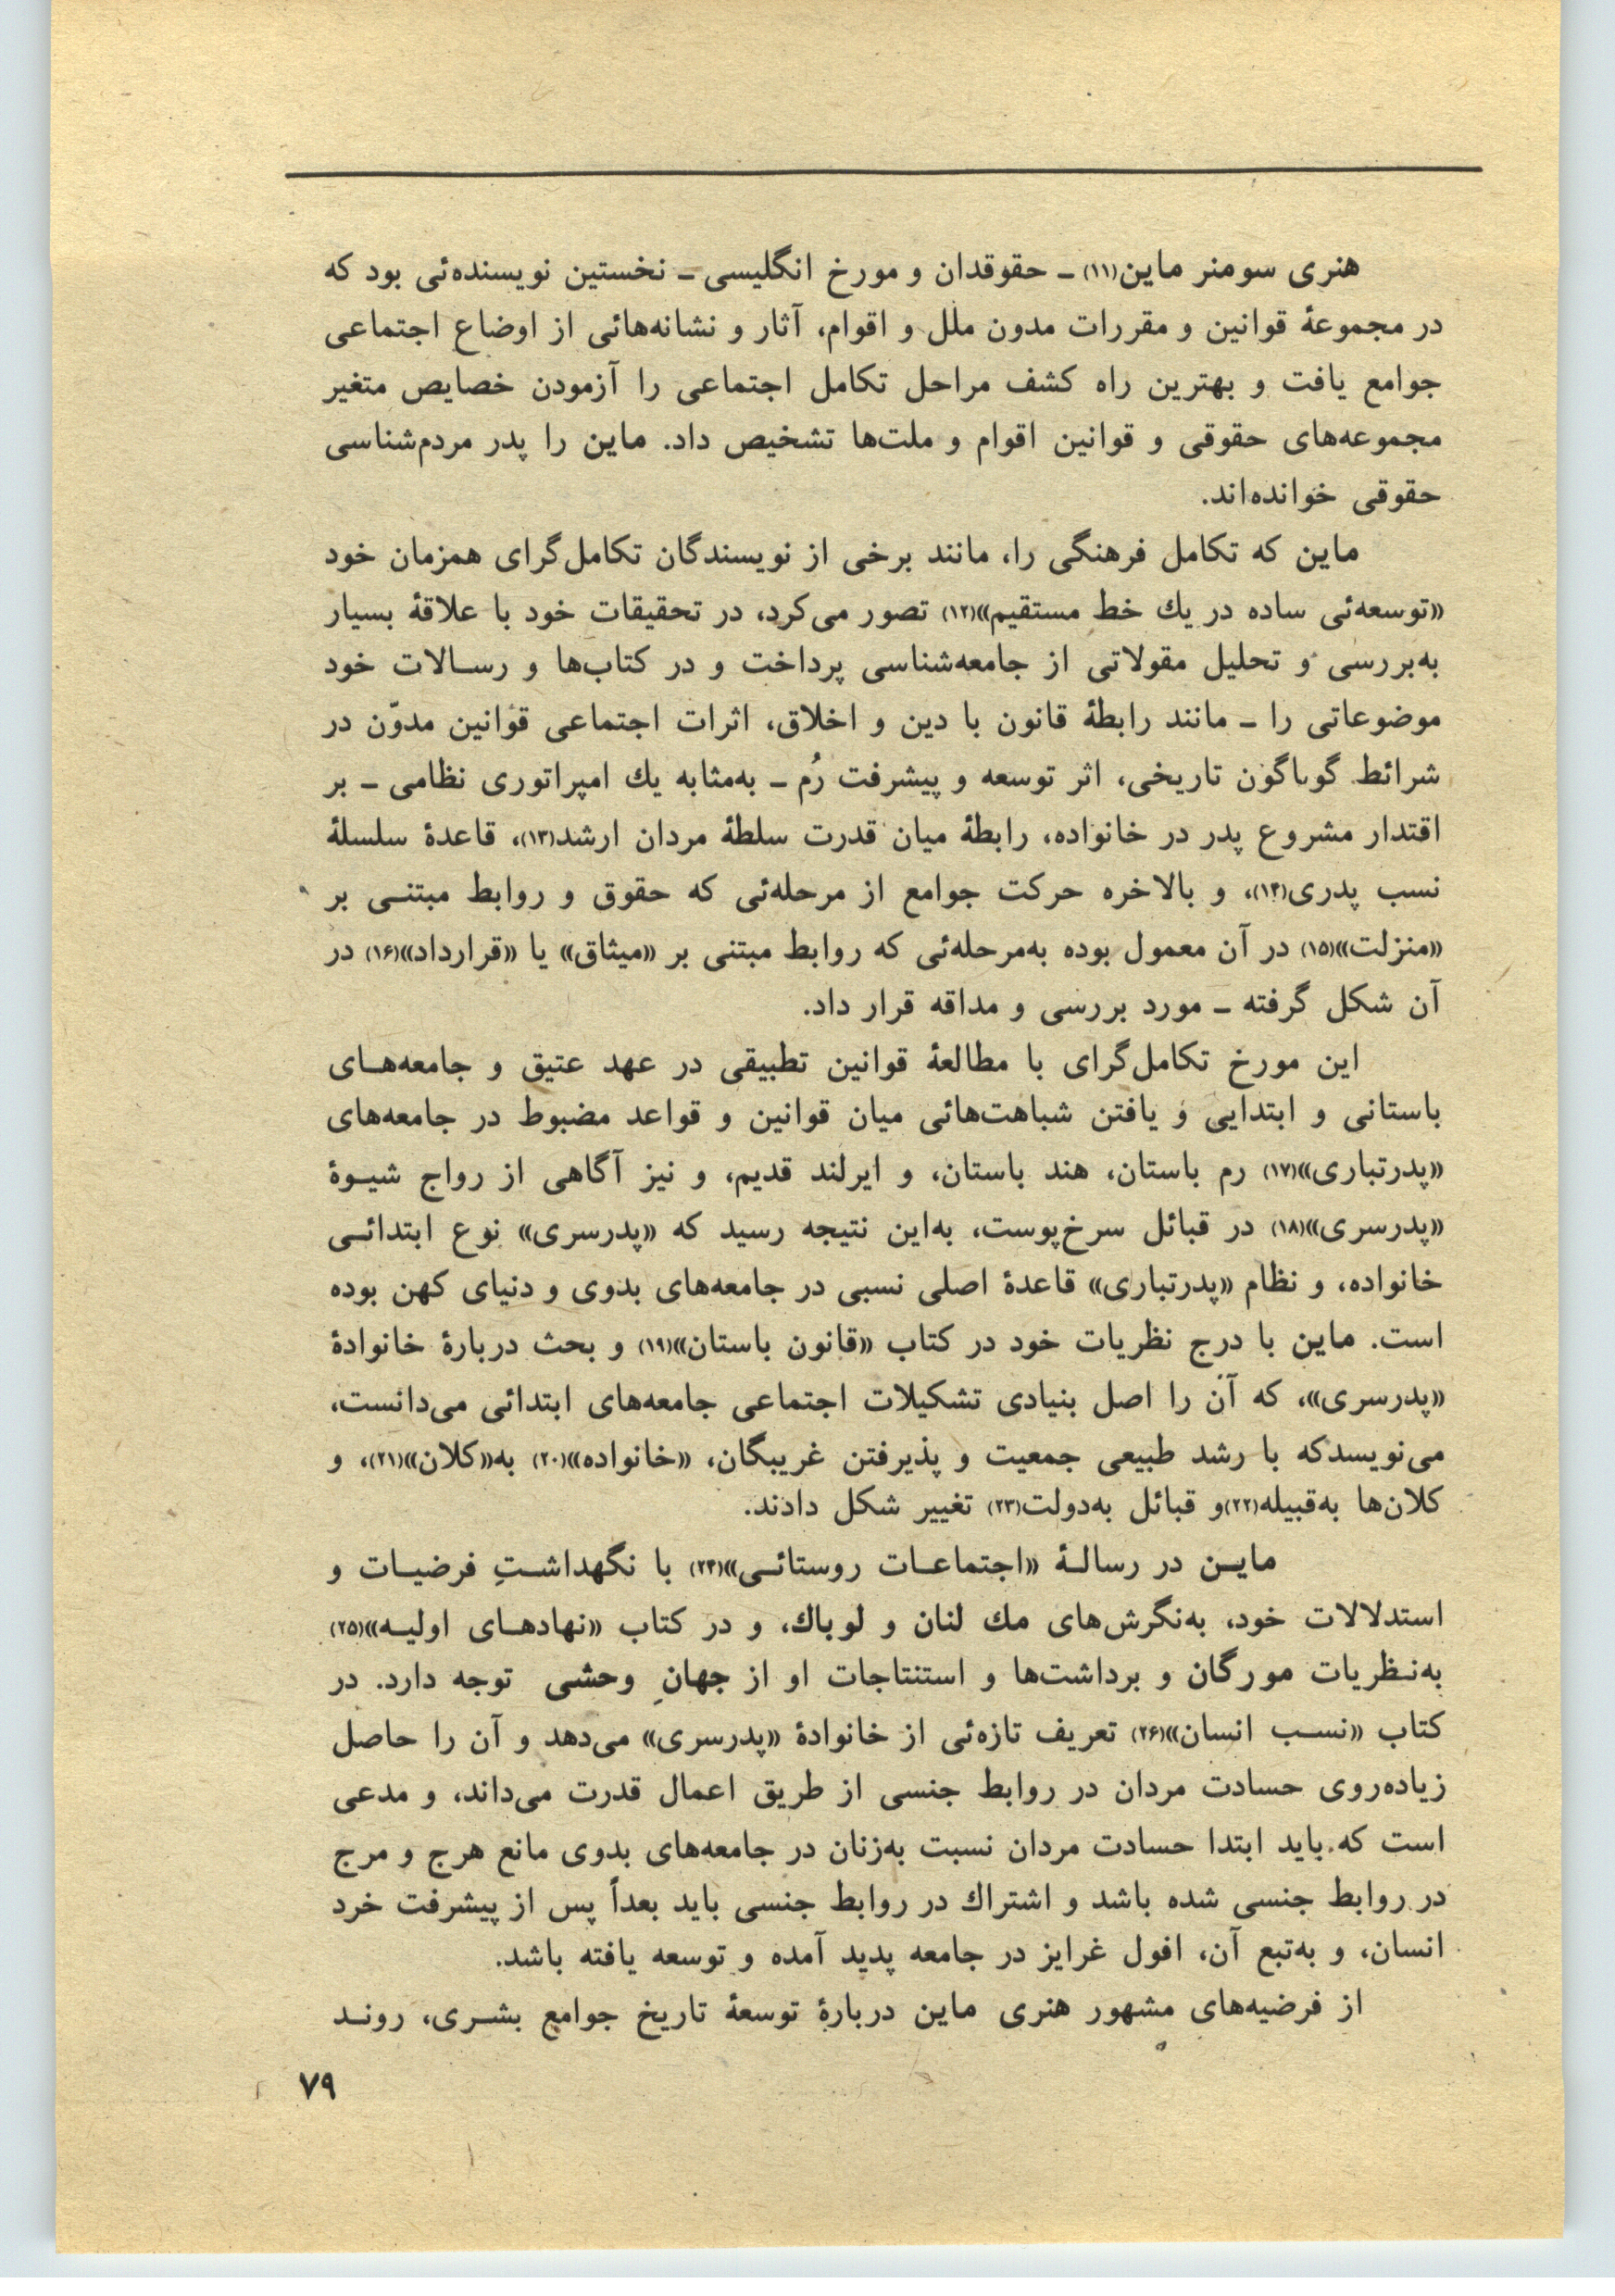 هنری سومنر ماین(۱۱) ـ حقوقدان و مورخ انگلیسی ـ نخستین نویسنده‌ئی بود که
در مجموعهٔ قوانین و مقررات مدون ملل و اقوام، آثار و نشانه‌هائی از اوضاع اجتماعی
جوامع یافت و بهترین راه کشف مراحل تکامل اجتماعی را آزمودن خصایص متغیر
مجموعه‌های حقوقی و قوانین اقوام و ملت‌ها تشخیص داد. ماین را پدر مردم‌شناسی
حقوقی خوانده‌اند.
ماین که تکامل فرهنگی را، مانند برخی از نویسندگان تکامل‌گرای همزمان خود
«توسعه‌ئی ساده در یك خط مستقیم»(۱۲) تصور می‌کرد، در تحقیقات خود با علاقهٔ بسیار
به‌بررسی و تحلیل مقولاتی از جامعه‌شناسی پرداخت و در کتاب‌ها و رسـالات خود
موضوعاتی را ـ مانند رابطهٔ قانون با دین و اخلاق، اثرات اجتماعی قوانین مدوّن در
شرائط گوناگون تاریخی، اثر توسعه و پیشرفت رُم ـ به‌مثابه یك امپراتوری نظامی ـ بر
اقتدار مشروع پدر در خانواده، رابطهٔ میان قدرت سلطهٔ مردان ارشد(۱۳)، قاعدهٔ سلسلهٔ
نسب پدری(۱۴)، و بالاخره حرکت جوامع از مرحله‌ئی که حقوق و روابط مبتنـی بر
«منزلت»(۱۵) در آن معمول بوده به‌مرحله‌ئی که روابط مبتنی بر «میثاق» یا «قرارداد»(۱۶) در
آن شکل گرفته ـ مورد بررسی و مداقه قرار داد.
این مورخ تکامل‌گرای با مطالعهٔ قوانین تطبیقی در عهد عتیق و جامعه‌هـای
باستانی و ابتدایی و یافتن شباهت‌هائی میان قوانین و قواعد مضبوط در جامعه‌های
«پدرتباری»(۱۷) رم باستان، هند باستان، و ایرلند قدیم، و نیز آگاهی از رواج شیـوهٔ
«پدرسری»(۱۸) در قبائل سرخ‌پوست، به‌این نتیجه رسید که «پدرسری» نوع ابتدائـی
خانواده، و نظام «پدرتباری» قاعدهٔ اصلی نسبی در جامعه‌های بدوی و دنیای کهن بوده
است. ماین با درج نظریات خود در کتاب «قانون باستان»(۱۹) و بحث دربارهٔ خانوادهٔ
«پدرسری»، که آن را اصل بنیادی تشکیلات اجتماعی جامعه‌های ابتدائی می‌دانست،
می‌نویسدکه با رشد طبیعی جمعیت و پذیرفتن غریبگان، «خانواده»(۲۰) به«کلان»(۲۱)، و
کلان‌ها به‌قبیله(۲۲)و قبائل به‌دولت(۲۳) تغییر شکل دادند.
مایـن در رسالـهٔ «اجتماعـات روستائـی»(۲۴) با نگهداشـتِ فرضیـات و
استدلالات خود، به‌نگرش‌های مك لنان و لوباك، و در کتاب «نهادهـای اولیـه»(۲۵)
به‌نـظریات مورگان و برداشت‌ها و استنتاجات او از جهانِ وحشی توجه دارد. در
کتاب «نسـب انسان»(۲۶) تعریف تازه‌ئی از خانوادهٔ «پدرسری» می‌دهد و آن را حاصل
زیاده‌روی حسادت مردان در روابط جنسی از طریق اعمال قدرت می‌داند، و مدعی
است که باید ابتدا حسادت مردان نسبت به‌زنان در جامعه‌های بدوی مانع هرج و مرج
در روابط جنسی شده باشد و اشتراك در روابط جنسی باید بعداً پس از پیشرفت خرد
انسان، و به‌تبع آن، افول غرایز در جامعه پدید آمده و توسعه یافته باشد.
از فرضیه‌های مشهور هنری ماین دربارهٔ توسعهٔ تاریخ جوامع بشـری، رونـد
۷۹